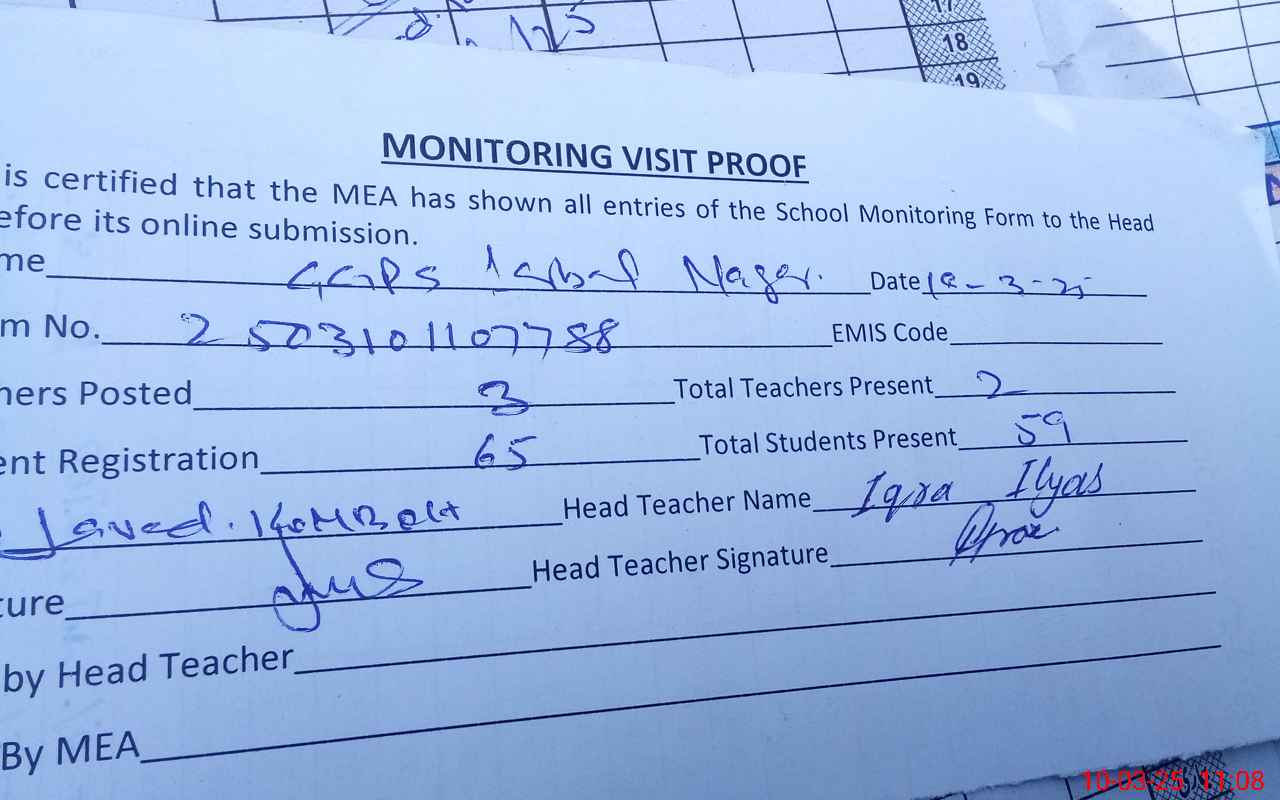 17
18
19
MONITORING VISIT PROOF
is certified that the MEA has shown all entries of the School Monitoring Form to the Head
efore its online submission.
me GGPS Iqbal Nagar. Date 10-3-25
m No. 2503101107788 EMIS Code
hers Posted 3 Total Teachers Present 2
ent Registration 65 Total Students Present 59
Javed. Head Teacher Name Iqra Ilyas
ture Head Teacher Signature
by Head Teacher
By MEA
10-03-25 11:08